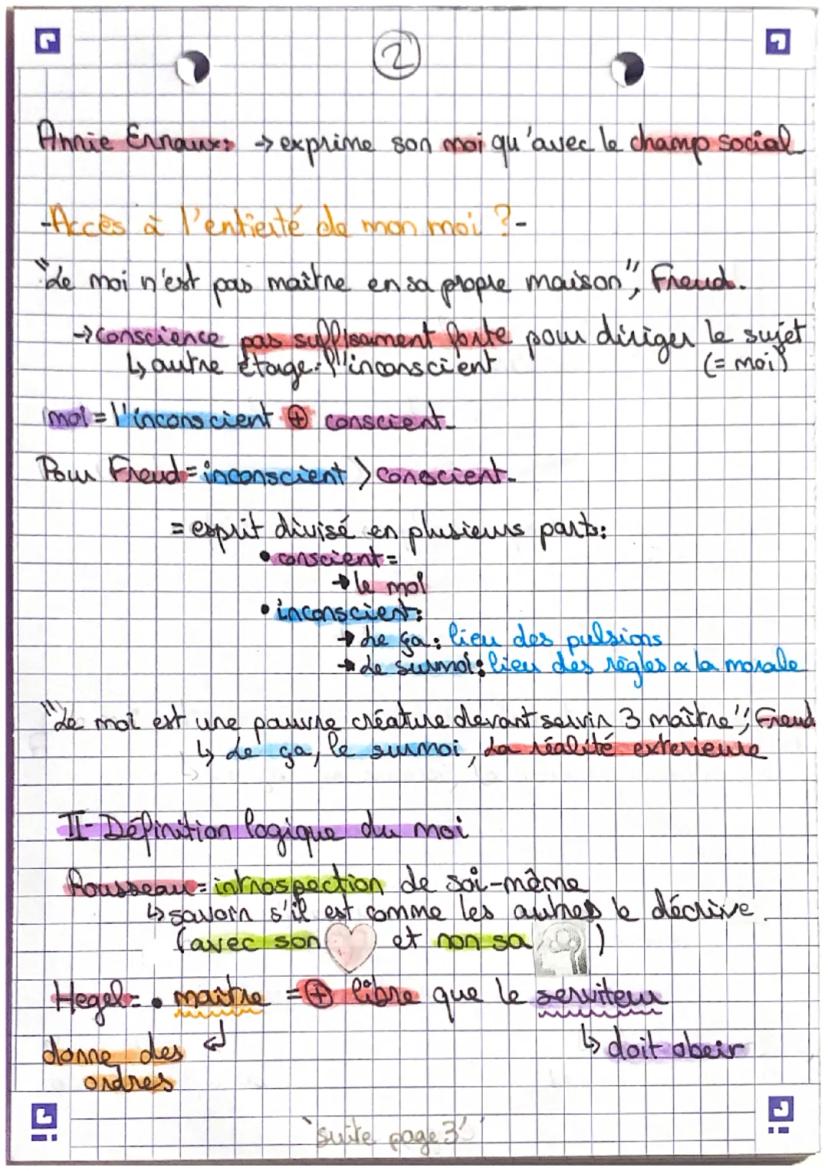 2
Annie Ernaux: → exprime son moi qu'avec le champ social
-Accès à l'entierté de mon moi ?-
"Le moi n'est pas maître en sa propre maison", Freud.
→ conscience pas suffisament forte pour diriger le sujet
↳ autre étage: l'inconscient (= moi)
moi = l'inconscient ⊕ conscient.
Pour Freud = inconscient > conscient.
= esprit divisé en plusieurs parts:
• conscient =
→ le moi
• inconscient:
→ Le ça: lieu des pulsions
→ Le surmoi: lieu des règles & la morale
"Le moi est une pauvre créature devant servir 3 maître", Freud
↳ Le ça, le surmoi, la réalité exterieure
II- Définition logique du moi
Rousseau = introspection de soi-même
↳ savoir s'il est comme les autres & décrive
(avec son et non sa )
Hegel = • maître = ⊕ libre que le serviteur
donne des ↳ doit obeir
ordres
'suite page 3'